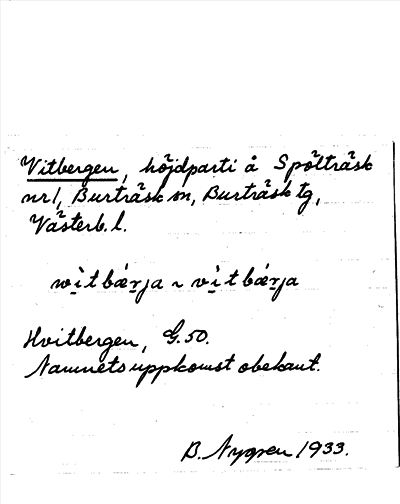 Vitbergen, höjdparti å Spölträsk
nr 1, Burträsk sn, Burträsk tg,
Västerb. l.
wi̱t bær̠ja ~ vi̱t bær̠ja
Hvitbergen, G. 50.
Namnets uppkomst obekant.
B. Nygren 1933.